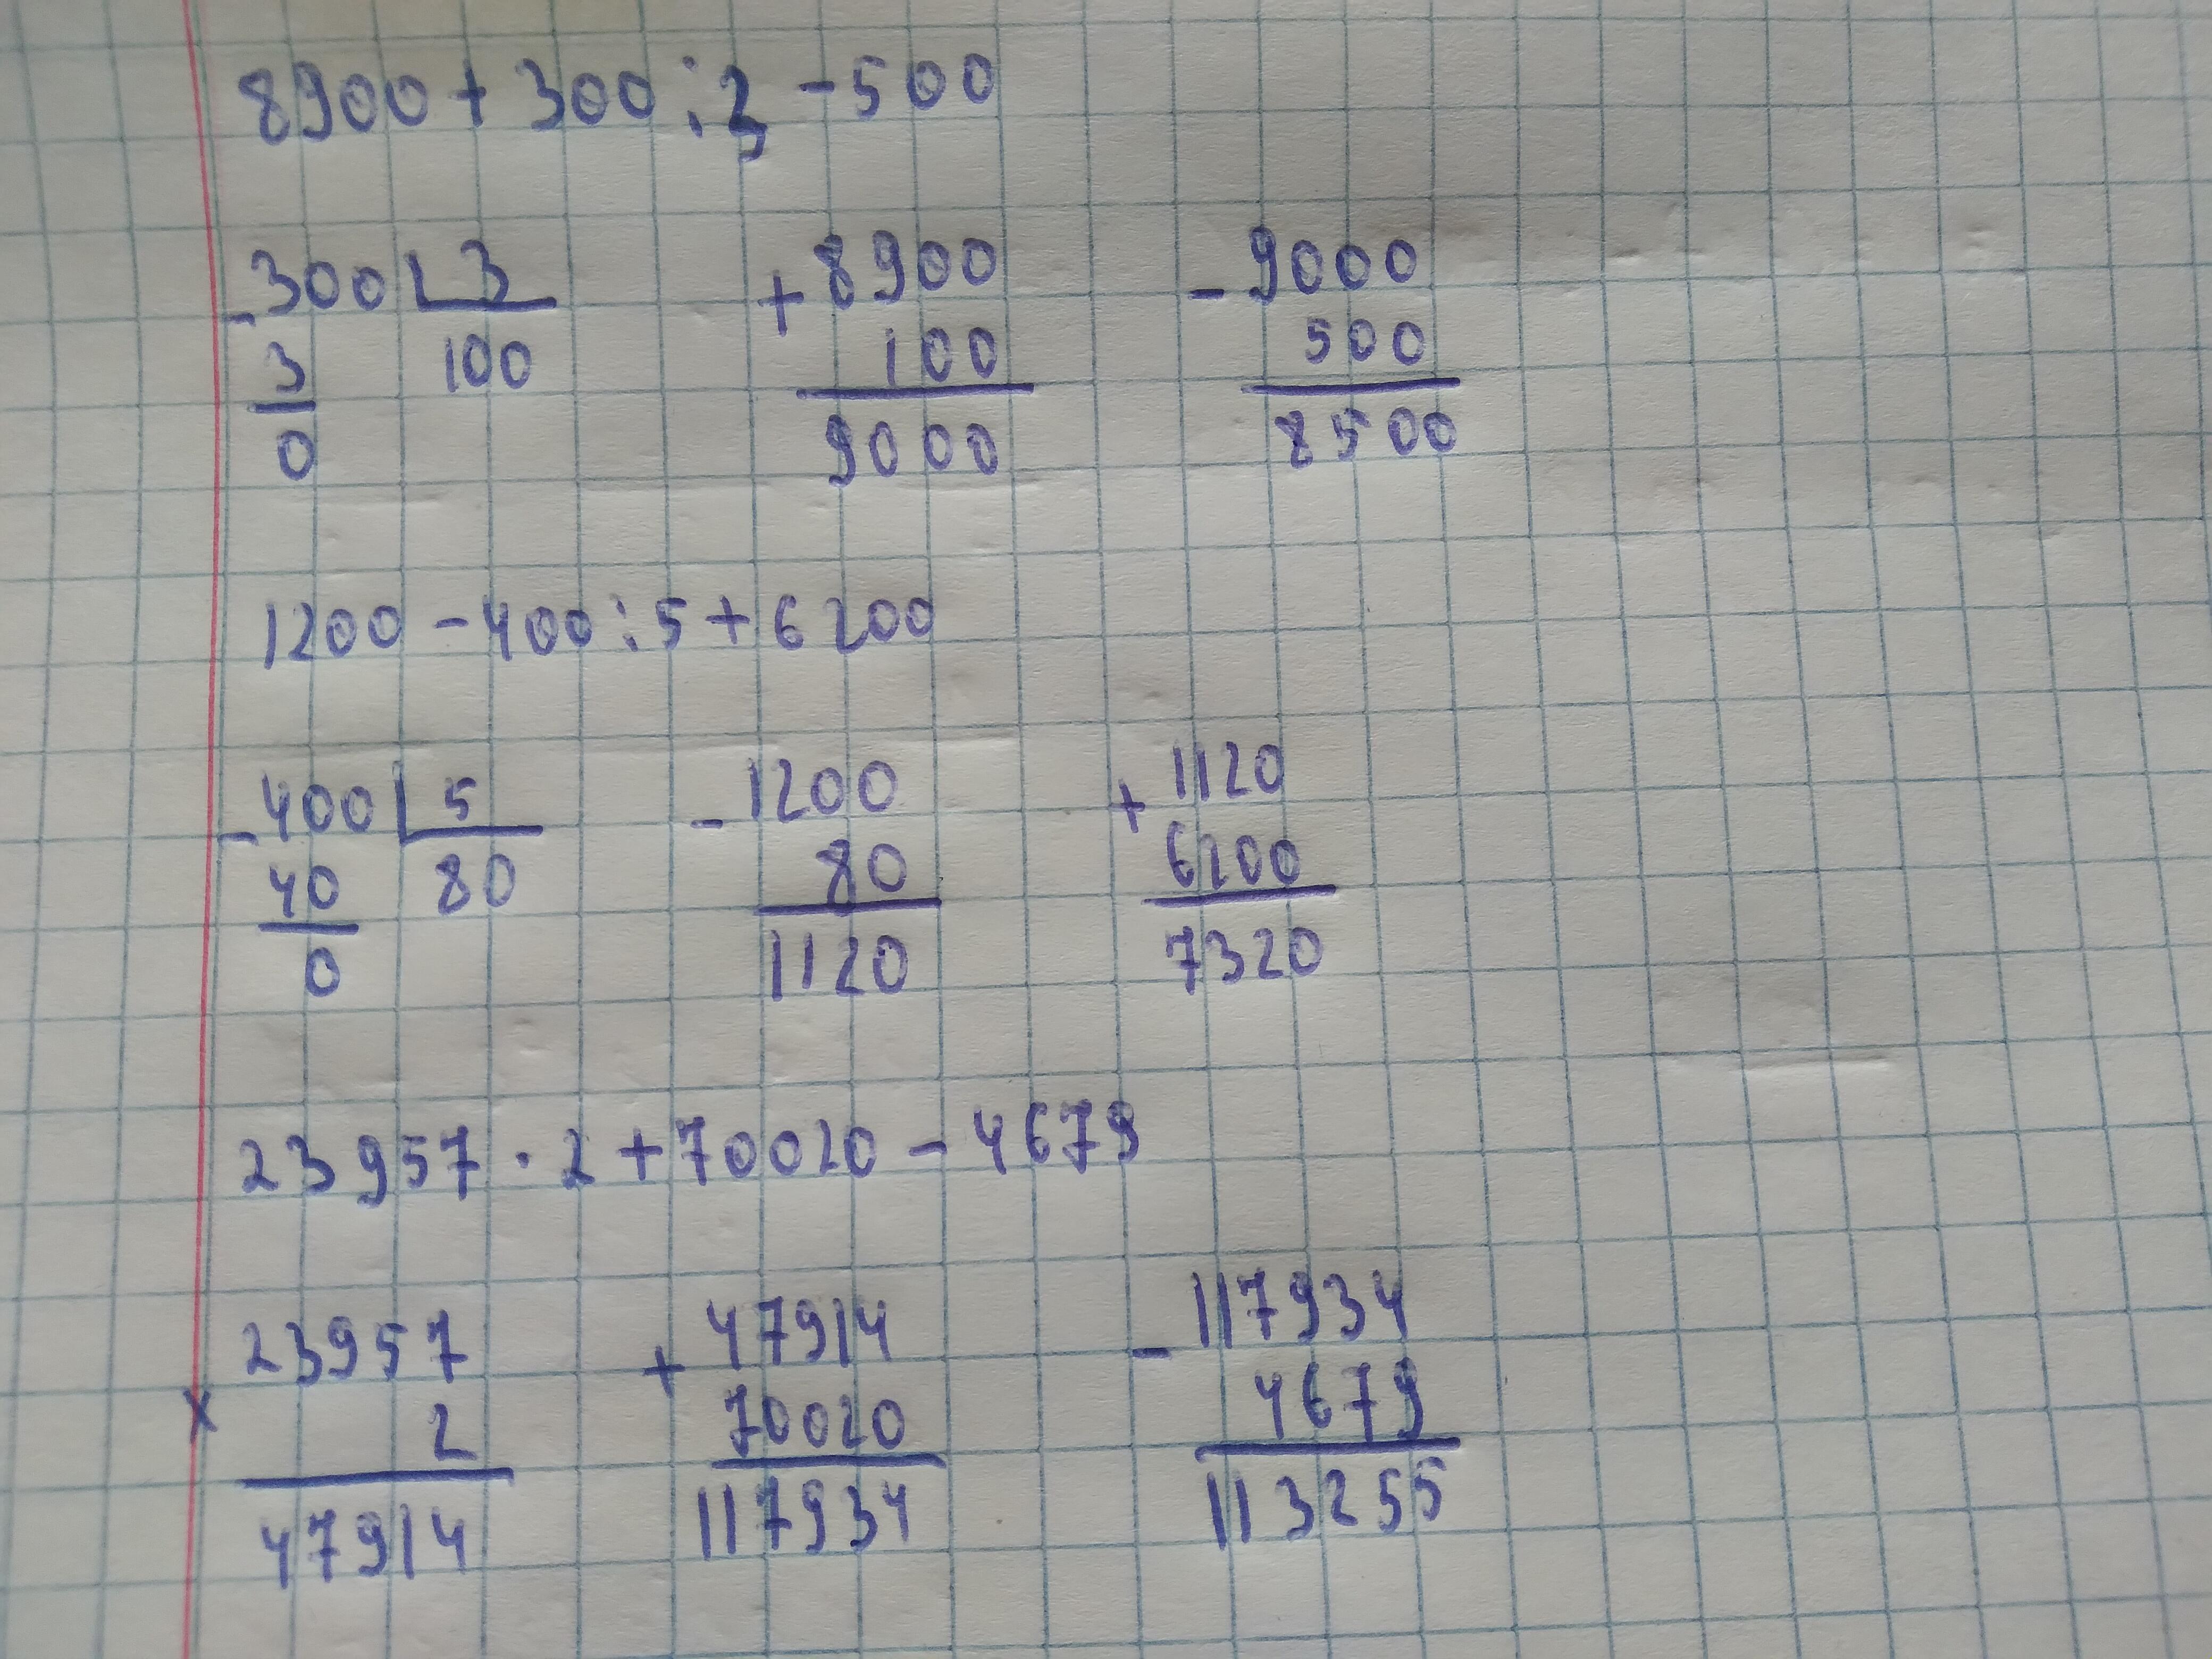 8900 + 300 : 3 - 500
- 300 | 3 + 8900 - 9000
3 100 100 500
0 9000 8500
1200 - 400 : 5 + 6200
- 400 | 5 - 1200 + 1120
40 80 80 6200
0 1120 7320
23957 · 2 + 70020 - 4679
x 23957 + 47914 - 117934
2 70020 4679
47914 117934 113255